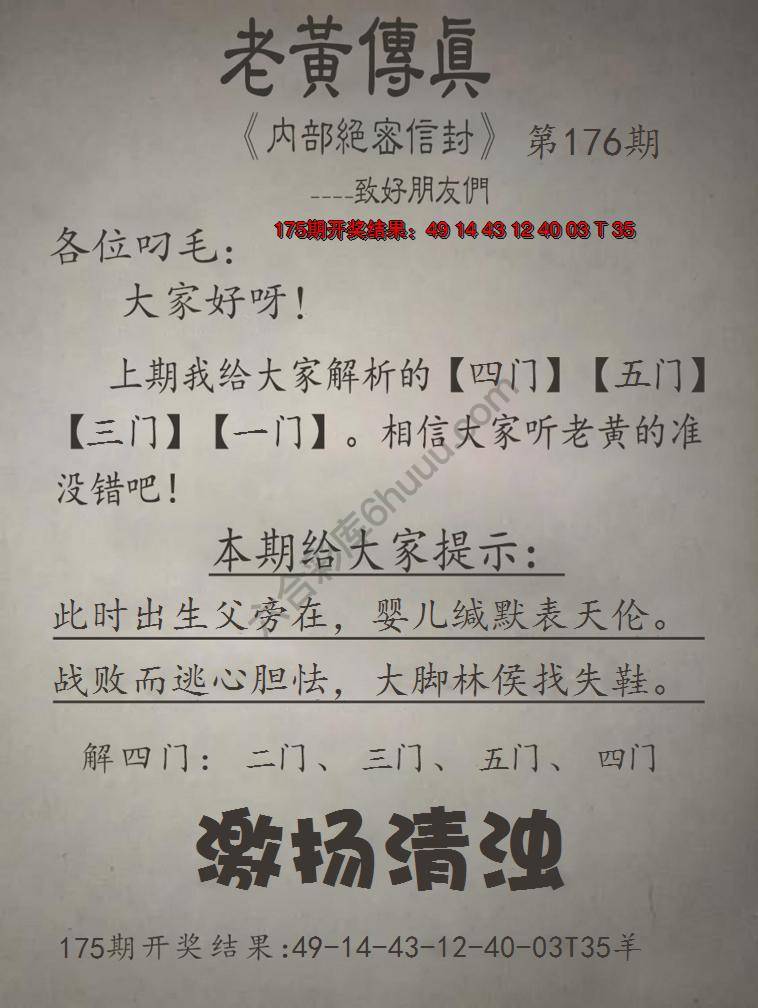 老黃傳眞
《内部絕密信封》 第176期
----致好朋友們
175期开奖结果：49 14 43 12 40 03 T 35
各位叼毛：
大家好呀！
上期我给大家解析的【四门】【五门】
【三门】【一门】。相信大家听老黄的准
没错吧！
六合彩库6huuu.com
本期给大家提示：
此时出生父旁在，婴儿缄默表天伦。
战败而逃心胆怯，大脚林侯找失鞋。
解四门： 二门、 三门、 五门、 四门
激扬清浊
175期开奖结果:49-14-43-12-40-03T35羊